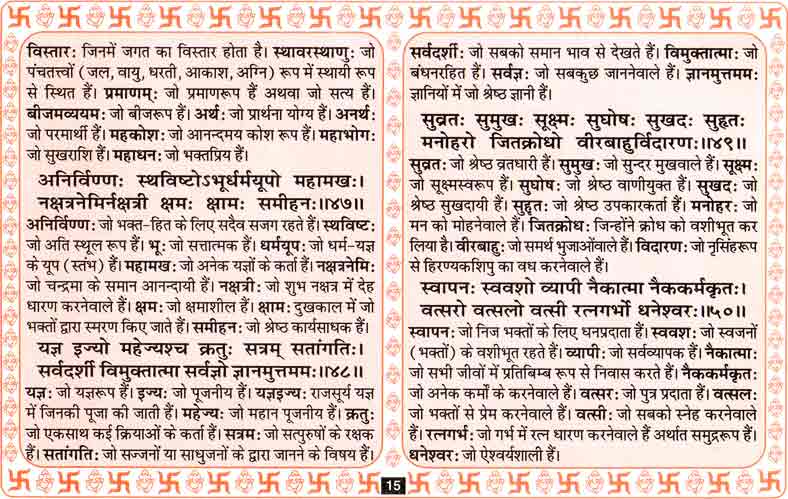 विस्तार: जिनमें जगत का विस्तार होता है। स्थावरस्थाणु: जो
पंचतत्त्वों (जल, वायु, धरती, आकाश, अग्नि) रूप में स्थायी रूप
से स्थित हैं। प्रमाणम्: जो प्रमाणरूप हैं अथवा जो सत्य हैं।
बीजमव्ययम: जो बीजरूप हैं। अर्थ: जो प्रार्थना योग्य हैं। अनर्थ:
जो परमार्थी हैं। महकोश: जो आनन्दमय कोश रूप हैं। महाभोग:
जो सुखराशि हैं। महाधन: जो भक्तप्रिय हैं।
अनिर्विण्णः स्थविष्टोऽभूर्धर्मयूपो महामखः।
नक्षत्रनेमिर्नक्षत्री क्षमः क्षामः समीहनः॥४७॥
अनिर्विण्ण: जो भक्त-हित के लिए सदैव सजग रहते हैं। स्थविष्ट:
जो अति स्थूल रूप हैं। भू: जो सत्तात्मक हैं। धर्मयूप: जो धर्म-यज्ञ
के यूप (स्तंभ) हैं। महामख: जो अनेक यज्ञों के कर्ता हैं। नक्षत्रनेमि:
जो चन्द्रमा के समान आनन्दायी हैं। नक्षत्री: जो शुभ नक्षत्र में देह
धारण करनेवाले हैं। क्षम: जो क्षमाशील हैं। क्षाम: दुखकाल में जो
भक्तों द्वारा स्मरण किए जाते हैं। समीहन: जो श्रेष्ठ कार्यसाधक हैं।
यज्ञ इज्यो महेज्यश्च क्रतुः सत्रम् सतांगतिः।
सर्वदर्शी विमुक्तात्मा सर्वज्ञो ज्ञानमुत्तममः॥४८॥
यज्ञ: जो यज्ञरूप हैं। इज्य: जो पूजनीय हैं। यज्ञइज्य: राजसूर्य यज्ञ
में जिनकी पूजा की जाती हैं। महेज्य: जो महान पूजनीय हैं। क्रतु:
जो एकसाथ कई क्रियाओं के कर्ता हैं। सत्रम: जो सत्पुरुषों के रक्षक
हैं। सतांगति: जो सज्जनों या साधुजनों के द्वारा जानने के विषय हैं।
सर्वदर्शी: जो सबको समान भाव से देखते हैं। विमुक्तात्मा: जो
बंधनरहित हैं। सर्वज्ञ: जो सबकुछ जाननेवाले हैं। ज्ञानमुत्तमम:
ज्ञानियों में जो श्रेष्ठ ज्ञानी हैं।
सुव्रतः सुमुखः सूक्ष्मः सुघोषः सुखदः सुहृतः
मनोहरो जितक्रोधो वीरबाहुर्विदारणः॥४९॥
सुव्रत: जो श्रेष्ठ व्रतधारी हैं। सुमुख: जो सुन्दर मुखवाले हैं। सूक्ष्म:
जो सूक्ष्मस्वरूप हैं। सुघोष: जो श्रेष्ठ वाणीयुक्त हैं। सुखद: जो
श्रेष्ठ सुखदायी हैं। सुहृत: जो श्रेष्ठ उपकारकर्ता हैं। मनोहर: जो
मन को मोहनेवाले हैं। जितक्रोध: जिन्होंने क्रोध को वशीभूत कर
लिया है। वीरबाहु: जो समर्थ भुजाओंवाले हैं। विदारण: जो नृसिंहरूप
से हिरण्यकशिपु का वध करनेवाले हैं।
स्वापनः स्ववशो व्यापी नैकात्मा नैककर्मकृतः।
वत्सरो वत्सलो वत्सी रत्नगर्भो धनेश्वरः॥५०॥
स्वापन: जो निज भक्तों के लिए धनप्रदाता हैं। स्ववश: जो स्वजनों
(भक्तों) के वशीभूत रहते हैं। व्यापी: जो सर्वव्यापक हैं। नैकात्मा:
जो सभी जीवों में प्रतिबिम्ब रूप से निवास करते हैं। नैककर्मकृत:
जो अनेक कर्मों के करनेवाले हैं। वत्सर: जो पुत्र प्रदाता हैं। वत्सल:
जो भक्तों से प्रेम करनेवाले हैं। वत्सी: जो सबको स्नेह करनेवाले
हैं। रत्नगर्भ: जो गर्भ में रत्न धारण करनेवाले हैं अर्थात समुद्ररूप हैं।
धनेश्वर: जो ऐश्वर्यशाली हैं।
15